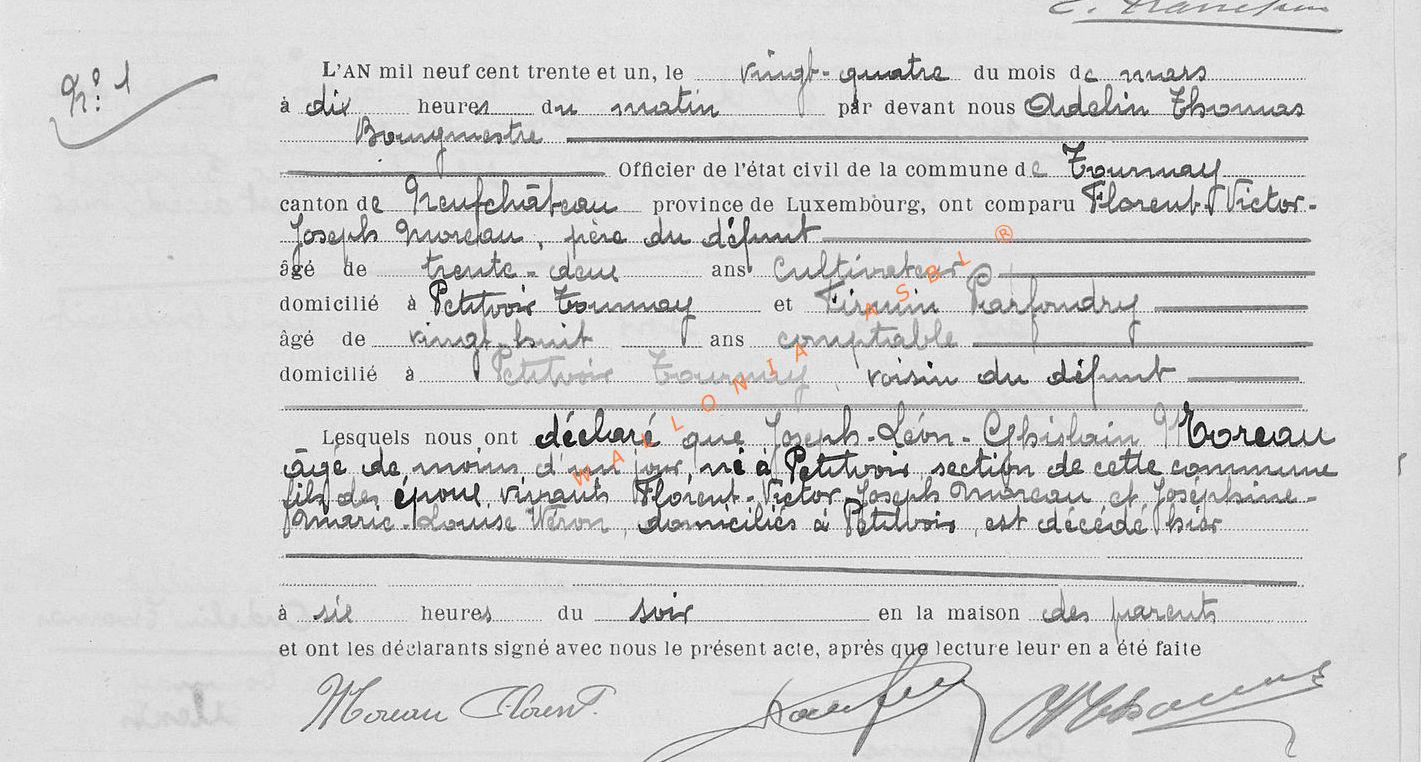 N° 1
L'AN mil neuf cent trente et un, le vingt-quatre du mois de mars
à dix heures du matin par devant nous Adelin Thomas
Bourgmestre
Officier de l'état civil de la commune de Tournay
canton de Neufchâteau province de Luxembourg, ont comparu Florent-Victor-
Joseph Moreau, père du défunt
âgé de trente-deux ans cultivateur
domicilié à Petitvoir Tournay et Firmin Parfondry
âgé de vingt-huit ans comptable
domicilié à Petitvoir Tournay, voisin du défunt
Lesquels nous ont déclaré que Joseph-Léon-Ghislain Moreau
âgé de moins d'un jour, né à Petitvoir, section de cette commune
fils des époux vivants Florent-Victor-Joseph Moreau et Joséphine-
Marie-Louise Wéron, domiciliés à Petitvoir, est décédé hier
à six heures du soir en la maison des parents
et ont les déclarants signé avec nous le présent acte, après que lecture leur en a été faite
Moreau Florent.
WALLONIA ASBL ®